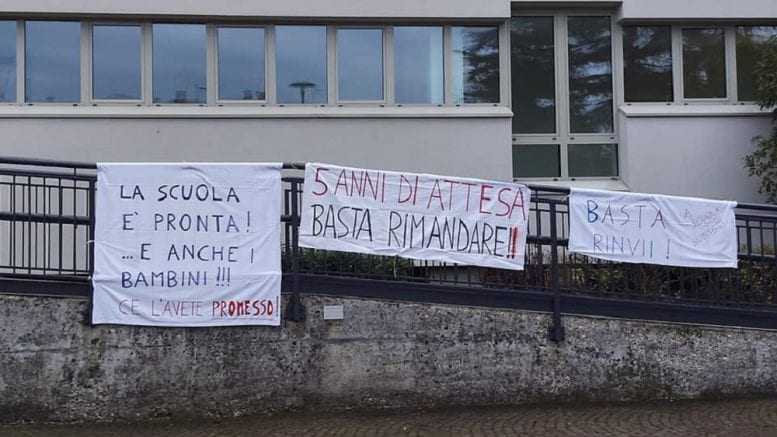 LA SCUOLA
E' PRONTA!
...E ANCHE I
BAMBINI!!!
CE L'AVETE PROMESSO!
5 ANNI DI ATTESA
BASTA RIMANDARE!!
BASTA
RINVII!
A
SCUOLA
SUBITO!!